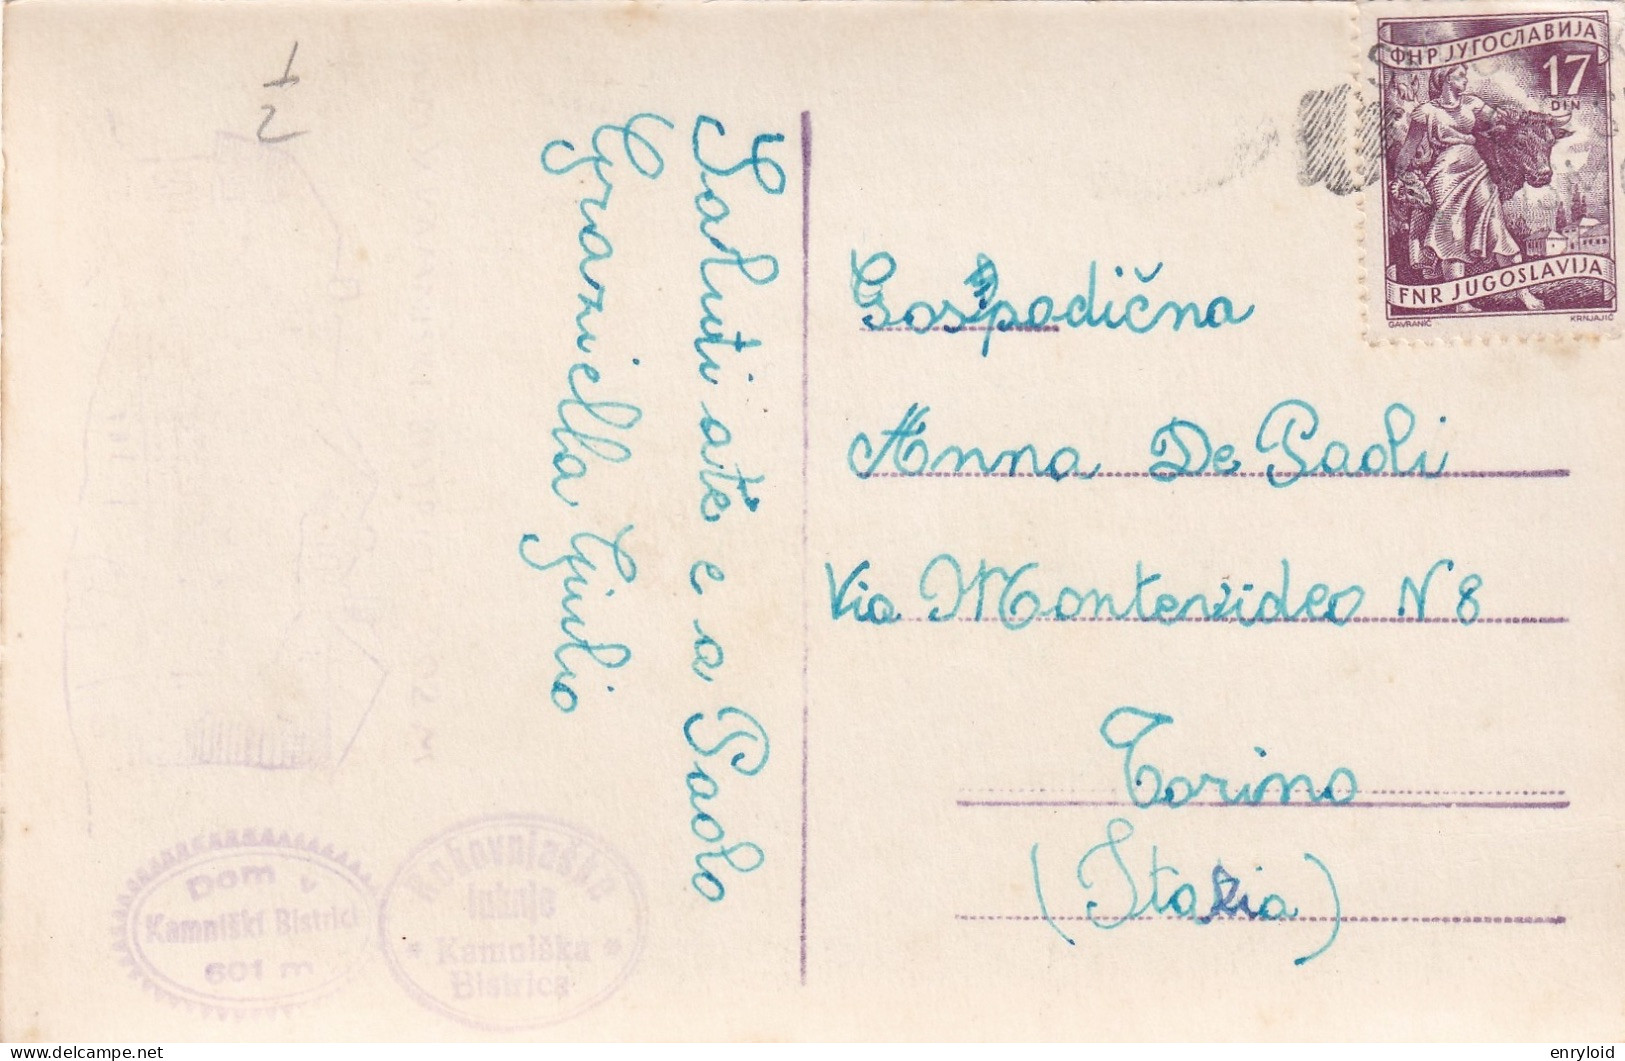 1
2
Saluti a te e a Paolo
Graziella Giulio
ФНР ЈУГОСЛАВИЈА
17
DIN
FNR JUGOSLAVIJA
GAVRANIĆ
KRNJAJIĆ
Gospodična
Anna De Paoli
Via Montevideo N 8
Torino
(Italia)
Dom v
Kamniški Bistrici
601 m
Rokovnjaške
luknje
* Kamniška *
Bistrica
enryloid